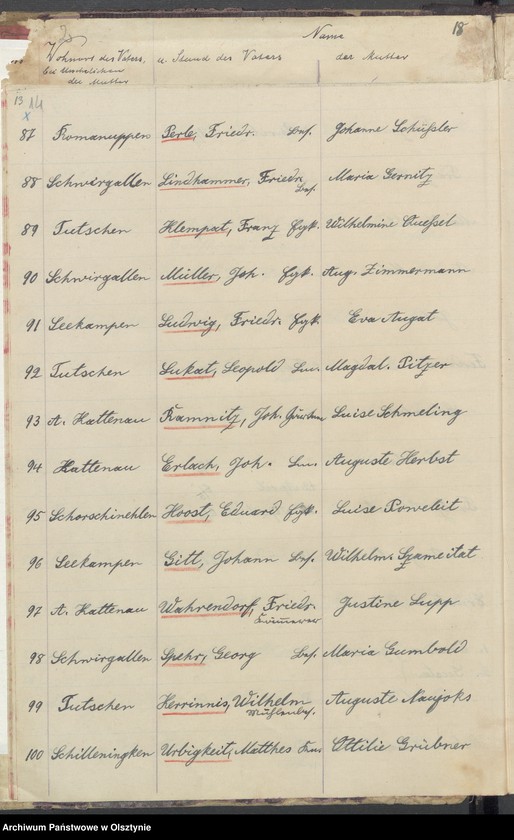 Name 18
Wohnort des Vaters, u. Stand des Vaters der Mutter
bei Unehelichen
der Mutter
13 14
x
87 Romanuppen Perle, Friedr. Bes. Johanne Schüssler
88 Schwirgallen Lindhammer, Friedr. Maria Gornitz
Bes.
89 Tutschen Klempat, Franz Wilhelmine Quessel
90 Schwirgallen Müller, Joh. Aug. Zimmermann
91 Seekampen Ludwig, Friedr. Eva Augat
92 Tutschen Lukat, Leopold Magdal. Pitzer
93 A. Kattenau Kamnitz, Joh. Luise Schmeling
94 Kattenau Erlach, Joh. Auguste Herbst
95 Schorschinehlen Hoost, Eduard Luise Poweleit
96 Seekampen Gitt, Johann Bes. Wilhelm. Szameitat
97 A. Kattenau Wahrendorf, Friedr. Justine Lupp
98 Schwirgallen Spehr, Georg Bes. Maria Gumbold
99 Tutschen Herrinnis, Wilhelm Auguste Naujoks
Mühlenbes.
100 Schilleningken Urbigkeit, Matthes Ottilie Grübner
Archiwum Państwowe w Olsztynie